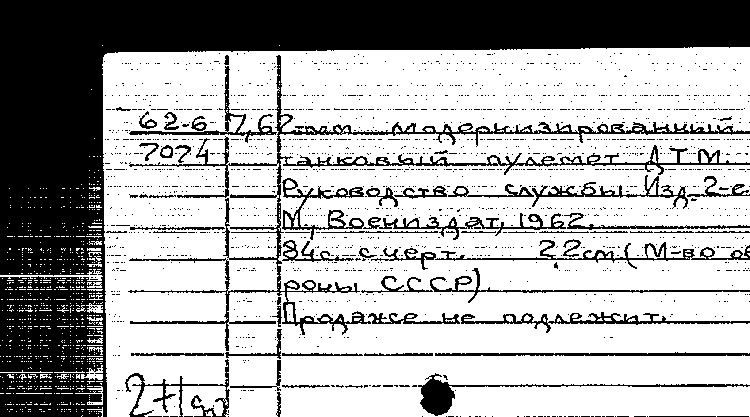 62-6 7,62 мм модернизированный
7074 танковый пулемет ДТМ.
Руководство службы. Изд. 2-е
М., Воениздат, 1962.
84с. с черт. 22см (М-во об
роны СССР).
Продаже не подлежит.